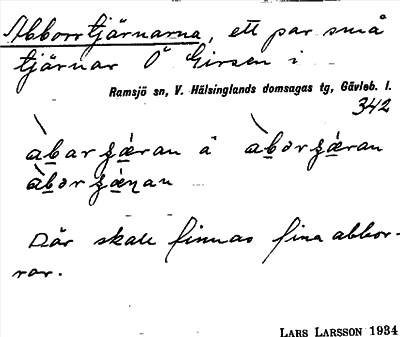 Abborrtjärnarna, ett par små
tjärnar Ö Girsen i
Ramsjö sn, V. Hälsinglands domsagas tg, Gävleb. l.
342
àbarʒǽran å àborʒǽran
àborʒǽṇan
Där skall finnas fina abbor-
rar.
LARS LARSSON 1934